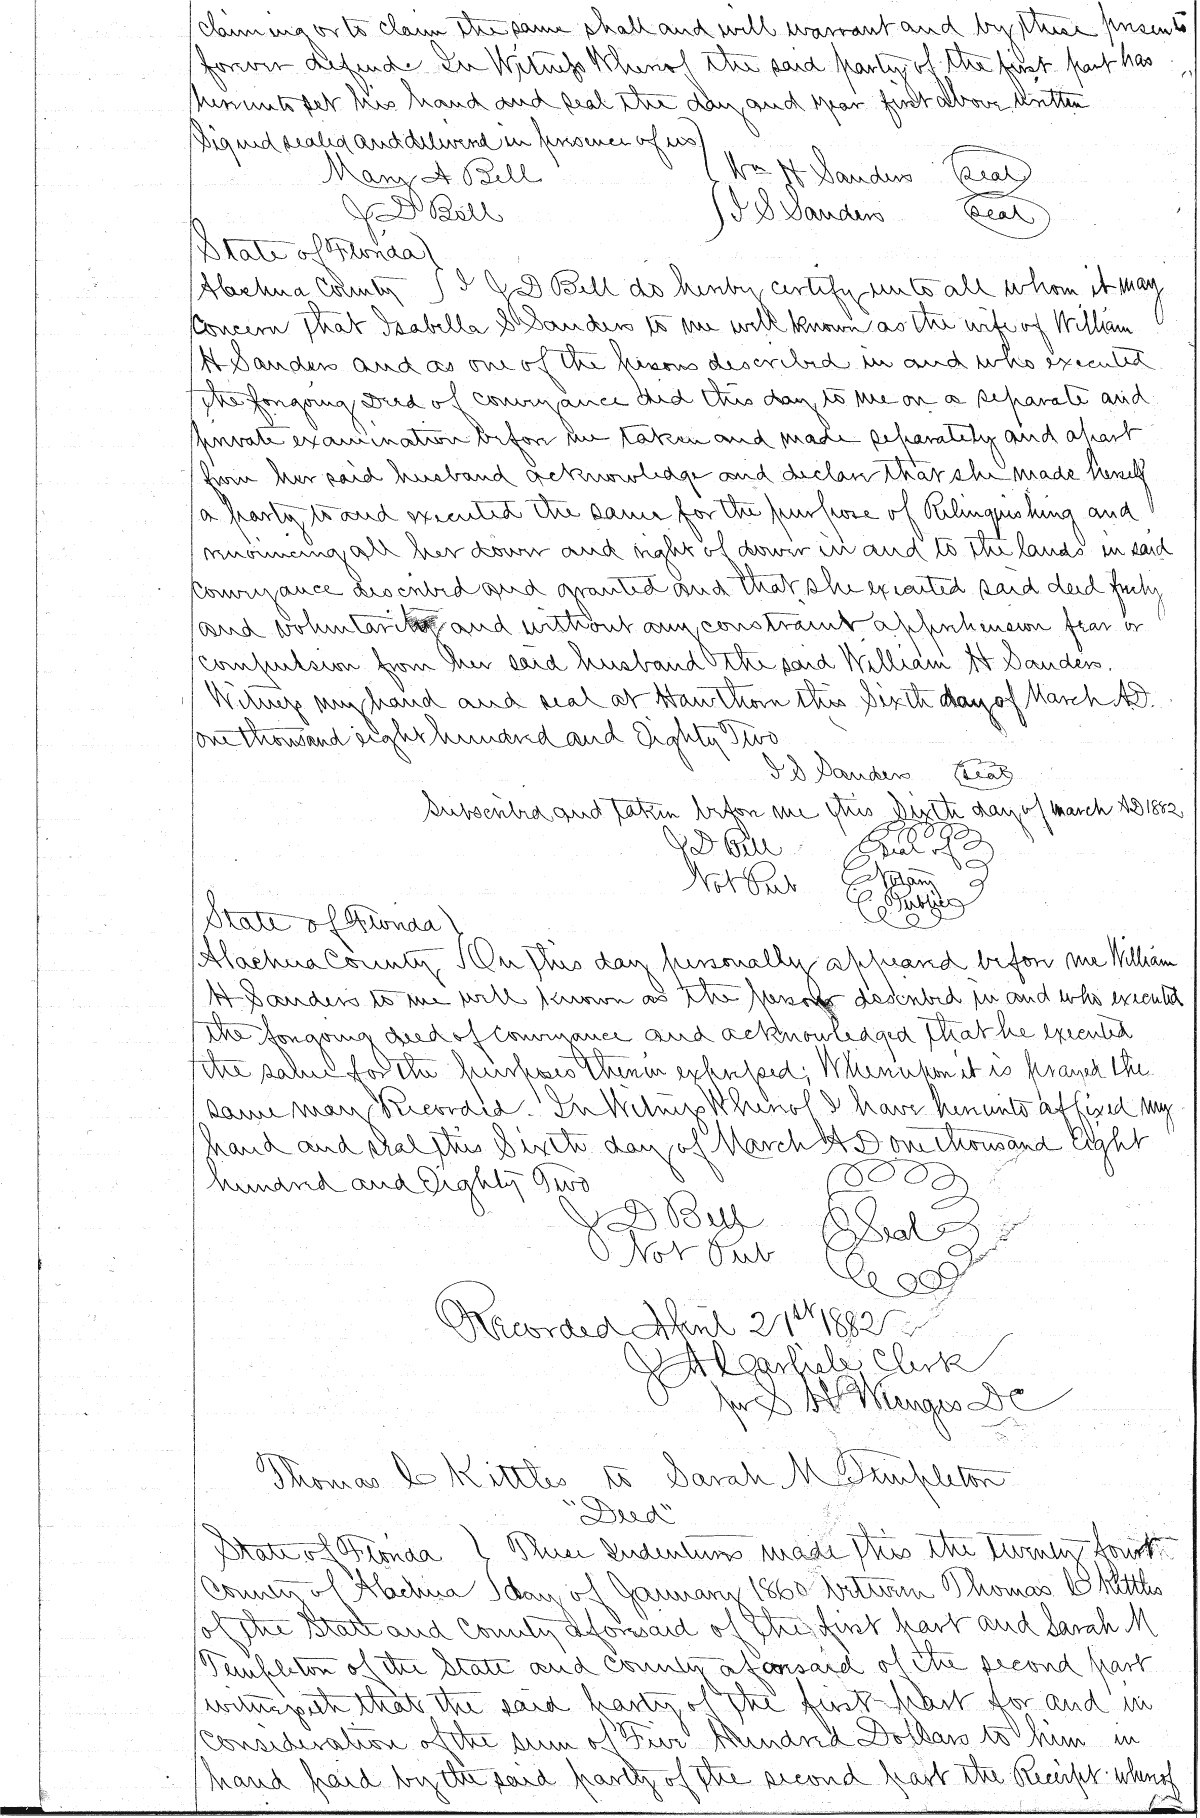 claiming or to claim the same shall and will warrant and by these presents
forever defend. In Witness Whereof the said party of the first part has
hereunto set his hand and seal the day and year first above written
Signed sealed and delivered in presence of us)
Mary A Bell ( Wm H Sanders (Seal)
J D Bell ) I S Sanders (Seal)
State of Florida)
Alachua County ) I J D Bell do hereby certify unto all whom it may
Concern that Isabella S Sanders to me well known as the wife of William
H Sanders and as one of the persons described in and who executed
the foregoing Deed of conveyance did this day to me on a separate and
private examination before me taken and made separately and apart
from her said husband acknowledge and declare that she made herself
a party to and executed the same for the purpose of Relinquishing and
renouncing all her dower and right of dower in and to the lands in said
conveyance described and granted and that she executed said deed freely
and voluntarily and without any constraint apprehension fear or
compulsion from her said husband the said William H Sanders.
Witness my hand and seal at Hawthorn this Sixth day of March AD.
one thousand eight hundred and Eighty Two
I S Sanders (Seal)
Subscribed and taken before me this Sixth day of March AD 1882
J D Bell Seal of
Not Pub Notary
Public
State of Florida)
Alachua County ) On this day personally appeared before me William
H Sanders to me well known as the person described in and who executed
the foregoing deed of conveyance and acknowledged that he executed
the same for the purposes therein expressed; Whereupon it is prayed the
same may Recorded. In Witness Whereof I have hereunto affixed my
hand and seal this Sixth day of March AD one thousand Eight
hundred and Eighty Two
J D Bell Seal
Not Pub
Recorded April 21st 1882
J A Carlisle Clerk
per S H Wienges DC
Thomas C Kittles to Sarah M Templeton
"Deed"
State of Florida ) These Indentures made this the twenty fourth
County of Alachua ) day of January 1860 between Thomas C Kittles
of the State and County aforesaid of the first part and Sarah M
Templeton of the State and County aforesaid of the second part
witnesseth that the said party of the first part for and in
consideration of the sum of Five Hundred Dollars to him in
hand paid by the said party of the second part the Receipt whereof